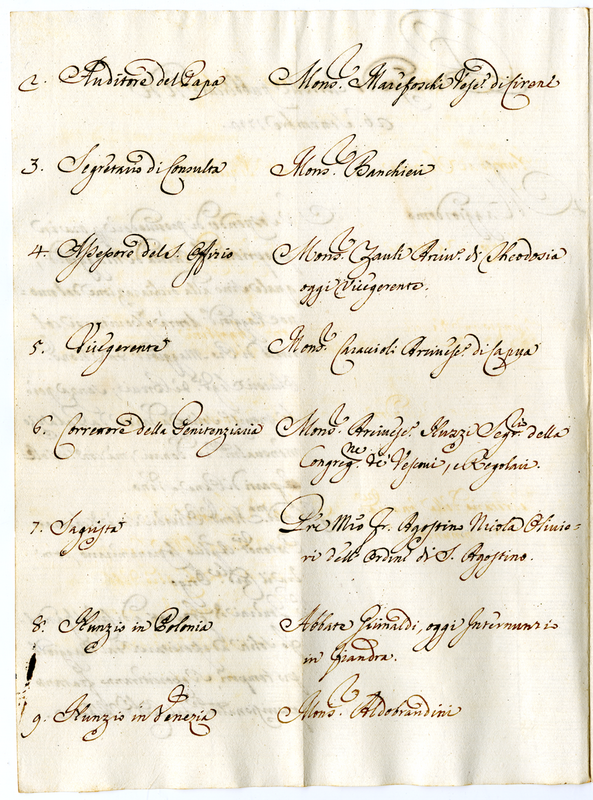 2. Auditore del Papa Mons.r Marefoschi Vesc.o di Cirene
3. Segretario di Consulta Mons.r Banchieri
4. Assessore del S. Offizio Mons.r Zauli Arciv.o di Theodosia
oggi Vicegerente.
5. Vicegerente Mons.r Caraccioli Arcivesc.o di Capua
6. Correttore della Penitenziaria Mons.r Arcivesc.o Nuzzi Segr.rio della
Congreg.ne de' Vescovi, e Regolari.
7. Sagrista P're M'ro Fr. Agostino Nicola Olivie=
ri dell'Ordine di S. Agostino.
8. Nunzio in Polonia Abbate Grimaldi, oggi Internunzio
in Fiandra.
9. Nunzio in Venezia Mons.r Aldobrandini